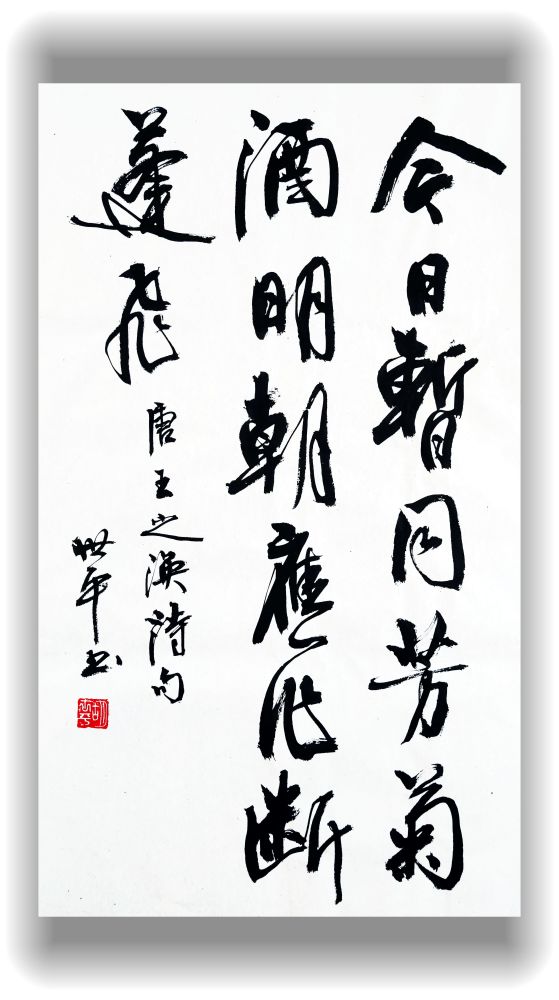 今日暫同芳菊
酒明朝應作斷
蓬飛
唐王之渙詩句
世平书